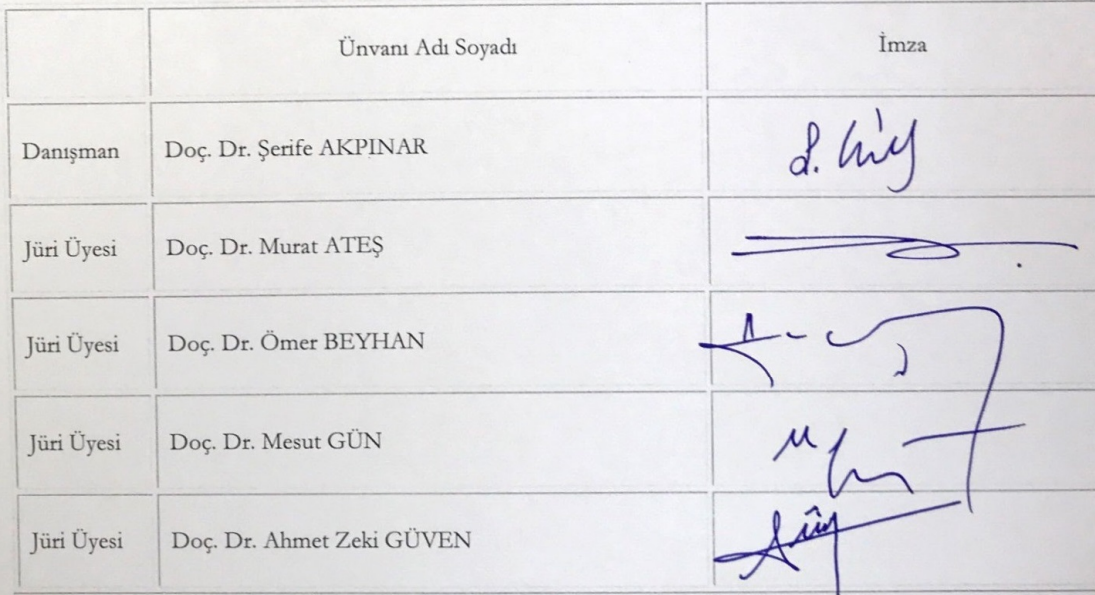 Ünvanı Adı Soyadı İmza
Danışman Doç. Dr. Şerife AKPINAR
Jüri Üyesi Doç. Dr. Murat ATEŞ
Jüri Üyesi Doç. Dr. Ömer BEYHAN
Jüri Üyesi Doç. Dr. Mesut GÜN
Jüri Üyesi Doç. Dr. Ahmet Zeki GÜVEN